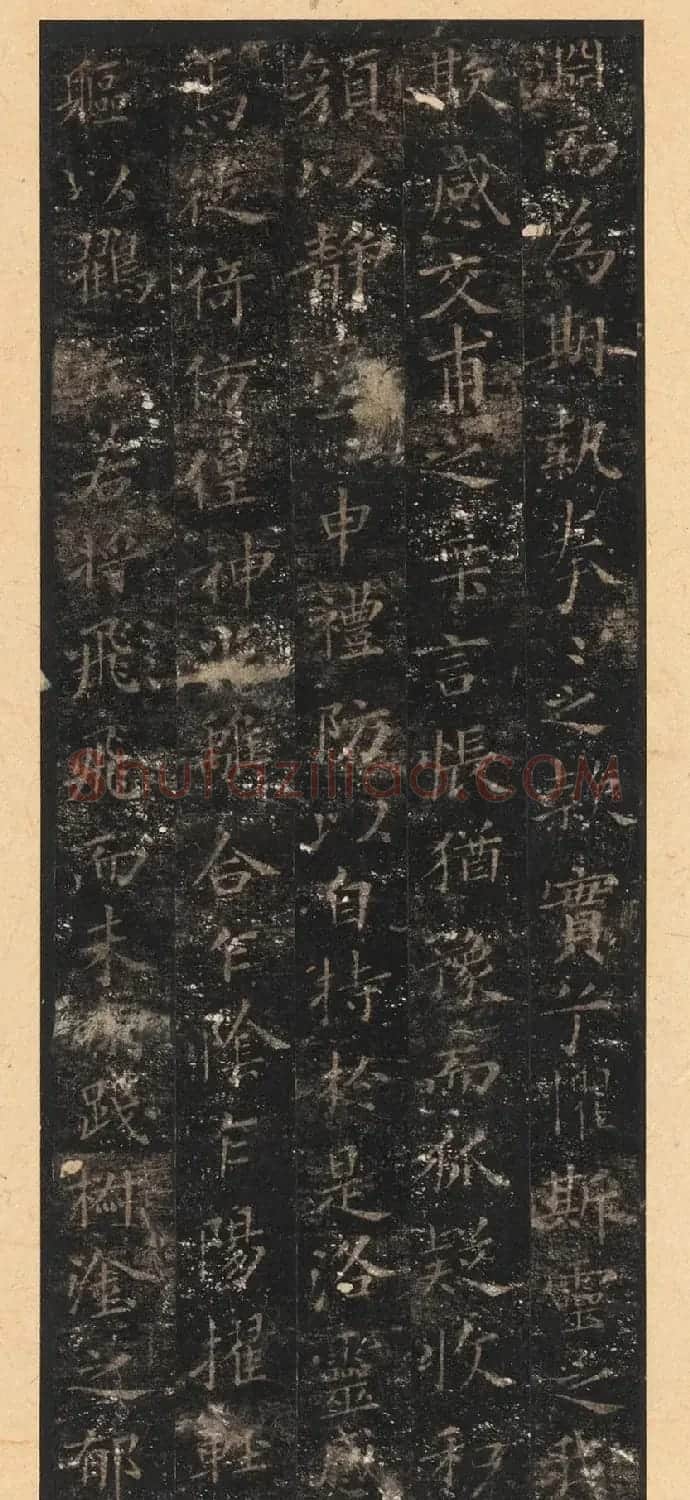 淵而為期執眷〻之款實兮懼斯靈之我
欺感交甫之棄言悵猶豫而狐疑收和
顏以靜申禮防以自持於是洛靈感
焉徙倚仿偟神光離合乍陰乍陽擢輕
軀以鶴若將飛飛而未踐椒塗之郁
Shufaziliao.COM